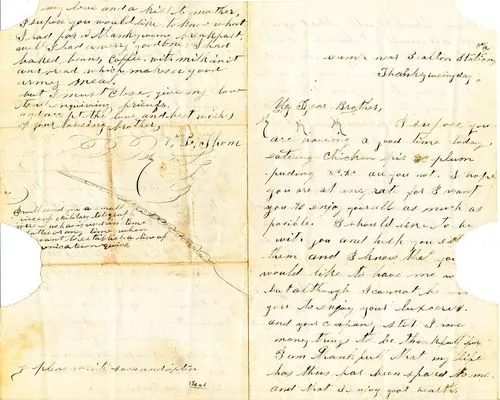 my love and a kiss to mother,
I supose you would like to know what
I had for a Thanksgiving breakfast,
well I had a very good one, I had
baked beans Coffee with milk in it
and bread which makes a good
army meal,
but I must close, give my love
to all enquiring friends,
and accept the love and best wishes
of your loveing brother
Va
camp near Station
Thanksgiving day
My Dear Brother,
I supose you
are haveing a good time today
eating Chicken pie & plum
puding &c &c are you not. I hope
you are at any rate for I want
you to enjoy yourself as much as
posible. I should like to be
with you and help you eat
them and I know that you
would like to have me
but although I cannot be
you to enjoy your
and your company still I have
many things to be thankfull for
I am Thankful that my life
has thus far been spared to me
and that I enjoy good health,
I will send you a small
piece of
at any time when
want to establish a line of
communication
please write soon and often